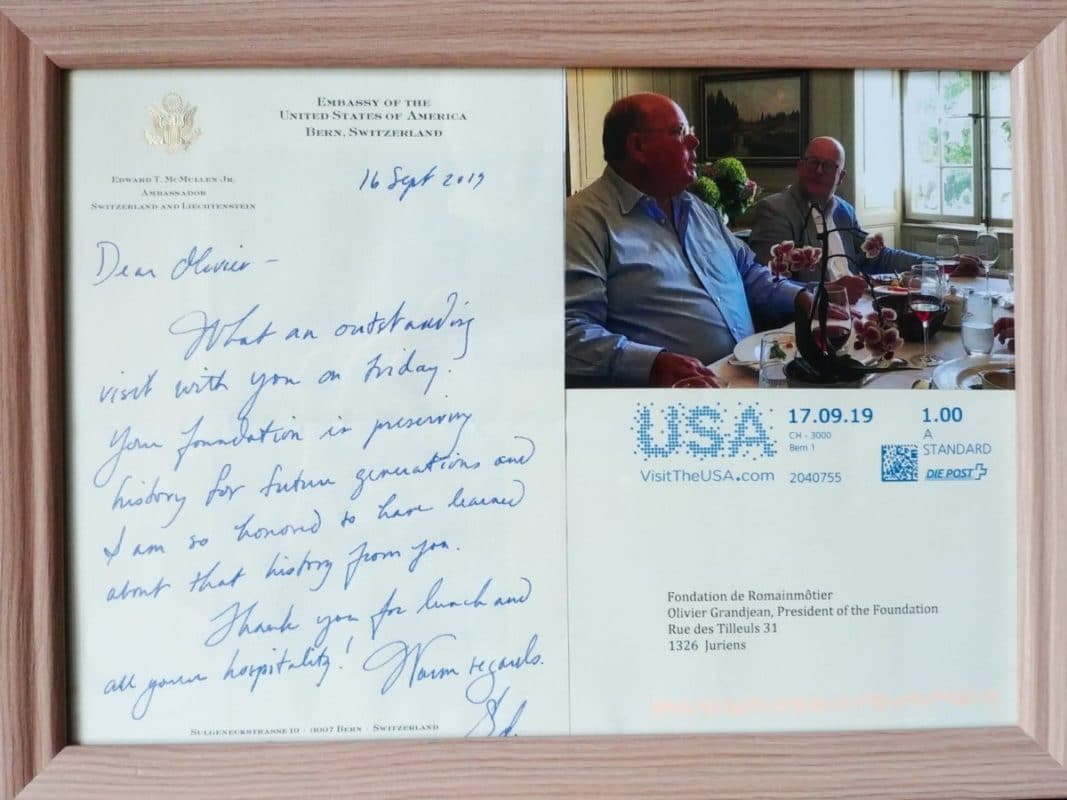 EMBASSY OF THE
UNITED STATES OF AMERICA
BERN, SWITZERLAND
EDWARD T. MCMULLEN JR.
AMBASSADOR
SWITZERLAND AND LIECHTENSTEIN
16 Sept 2019
Dear Olivier –
What an outstanding
visit with you on Friday.
Your foundation is preserving
history for future generations and
I am so honored to have learned
about that history from you.
Thank you for lunch and
all your hospitality!
Warm regards.
Ed.
SULGENECKSTRASSE 19 · 3007 BERN · SWITZERLAND
USA
VisitTheUSA.com
17.09.19
CH - 3000
Bern 1
2040755
1.00
A
STANDARD
DIE POST
Fondation de Romainmôtier
Olivier Grandjean, President of the Foundation
Rue des Tilleuls 31
1326 Juriens